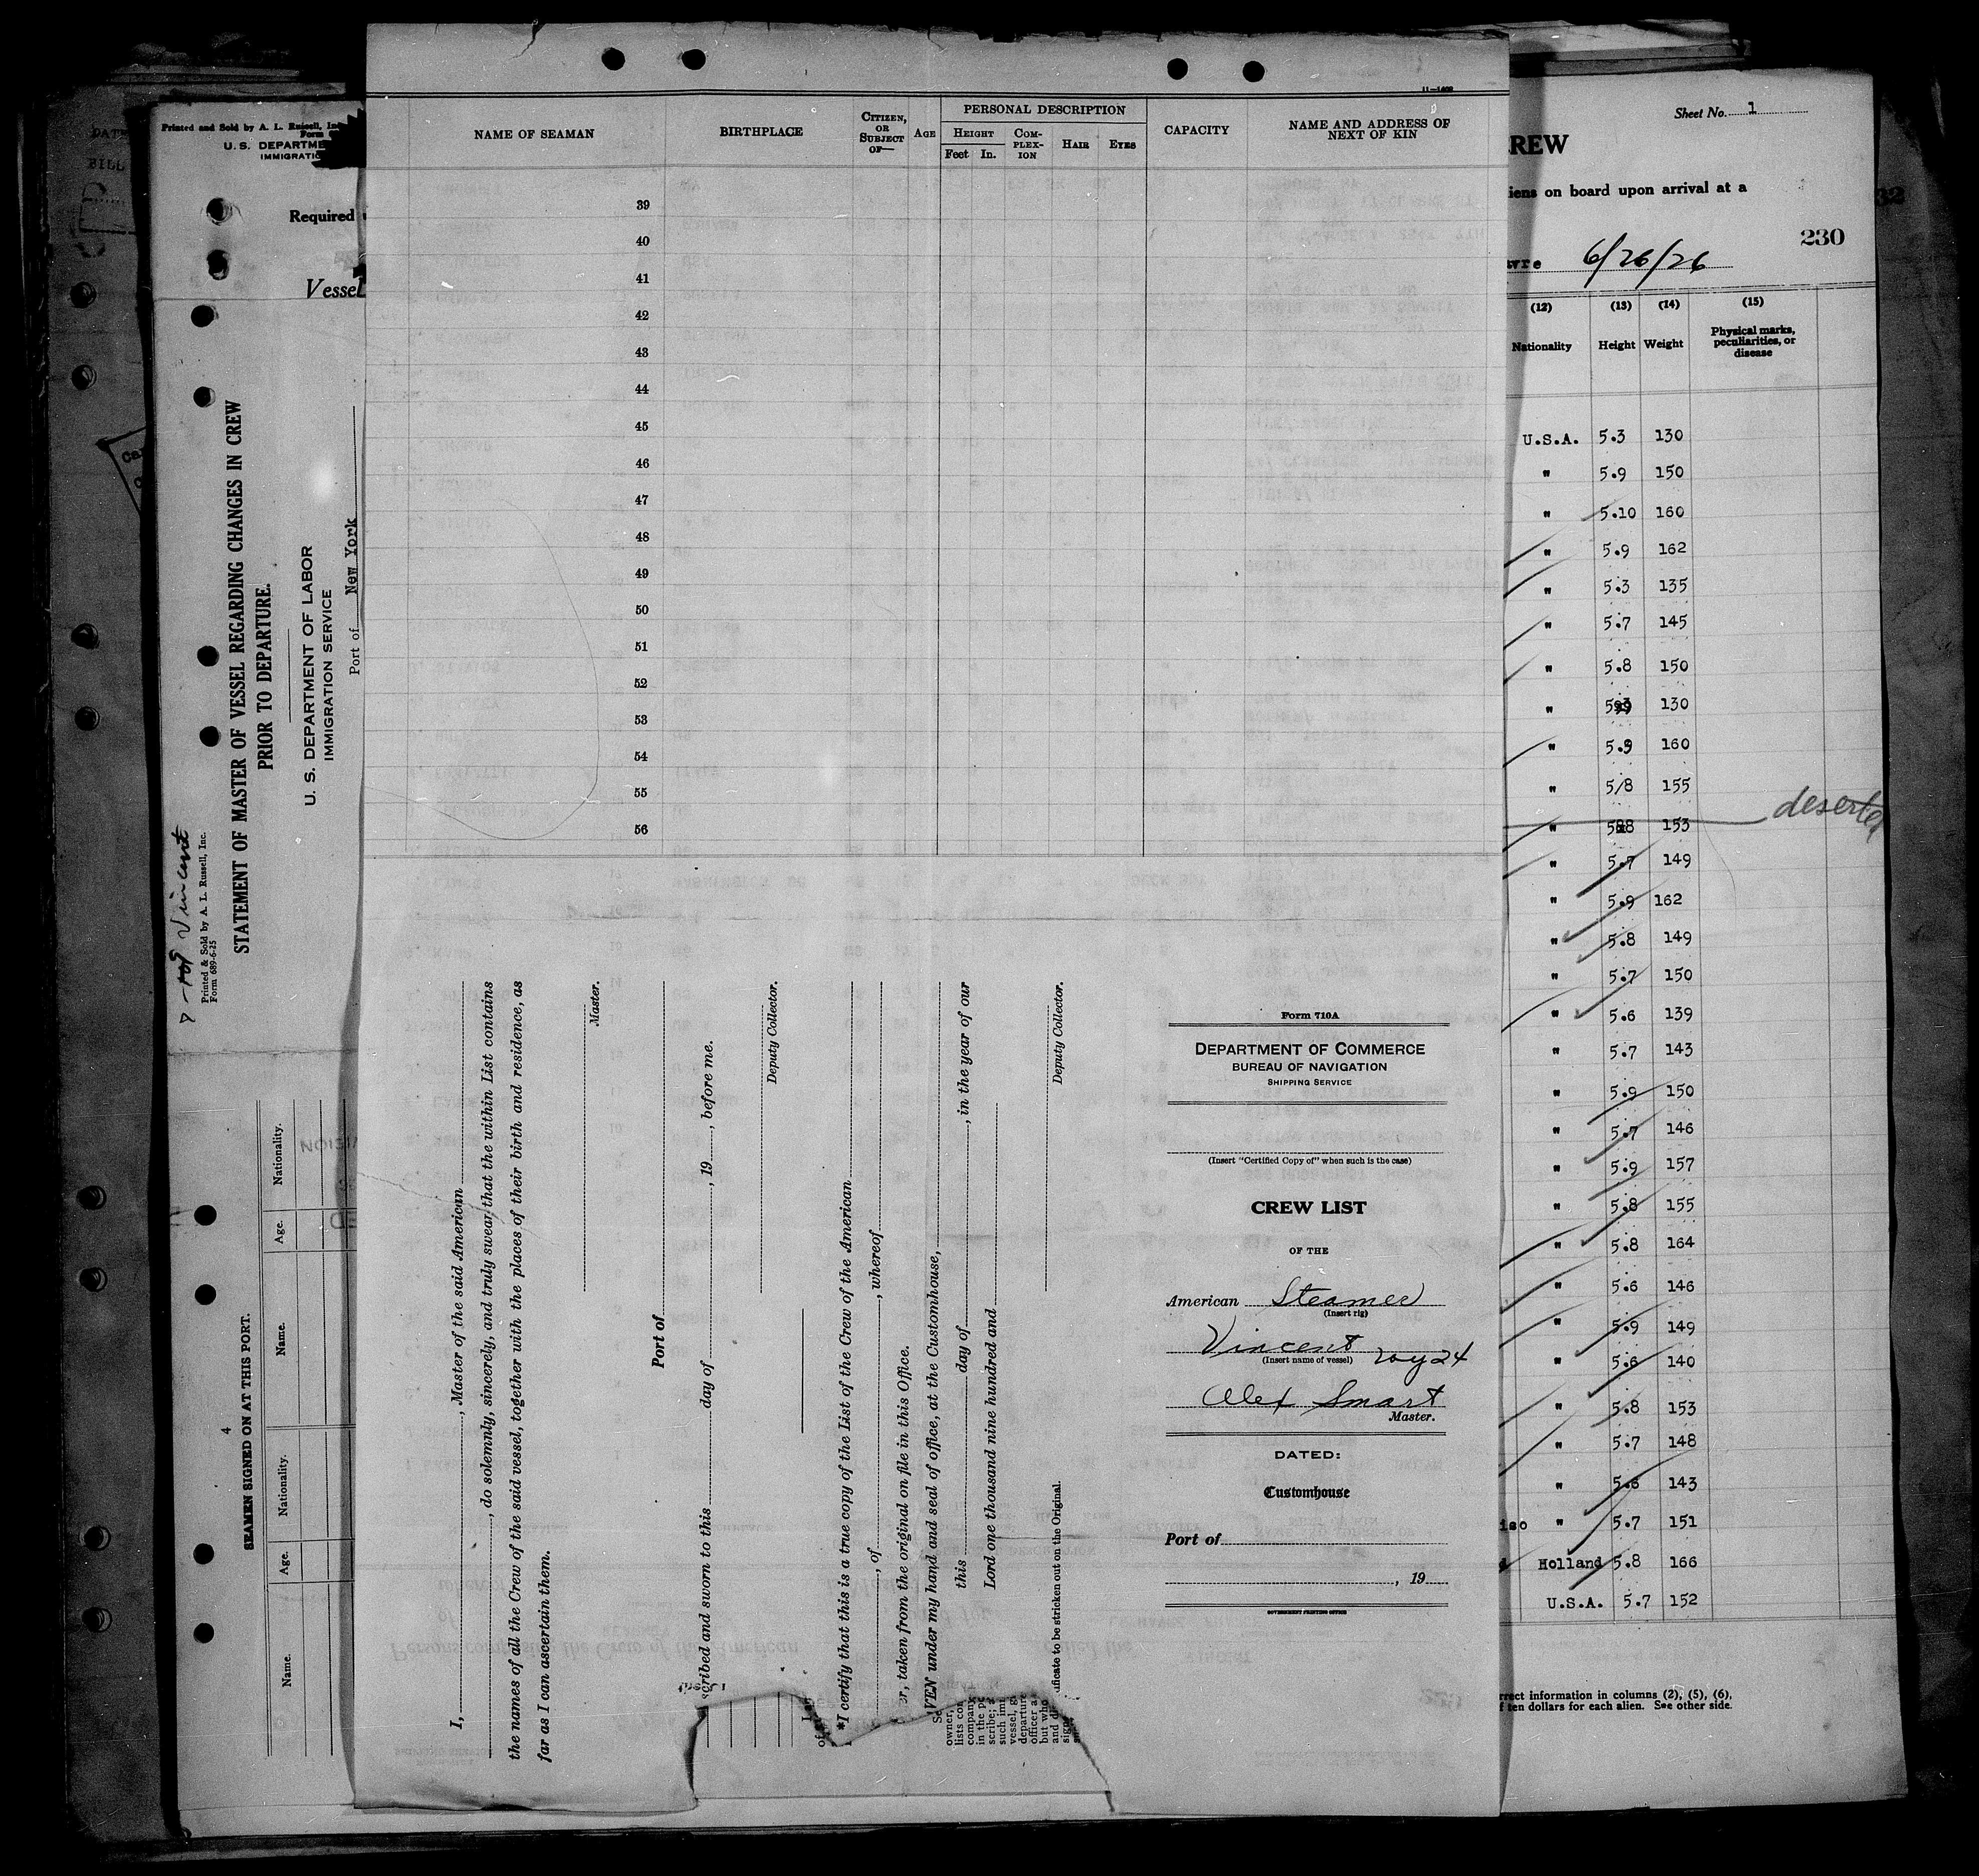 11—1602
NAME OF SEAMAN
BIRTHPLACE
CITIZEN, OR SUBJECT OF—
AGE
PERSONAL DESCRIPTION
HEIGHT
Feet
In.
COM-PLEX-ION
HAIR
EYES
CAPACITY
NAME AND ADDRESS OF NEXT OF KIN
39
40
41
42
43
44
45
46
47
48
49
50
51
52
53
54
55
56
I, , Master of the said American
, do solemnly, sincerely, and truly swear that the within List contains
the names of all the Crew of the said vessel, together with the places of their birth and residence, as
far as I can ascertain them.
Master.
Port of
scribed and sworn to this day of , 19 , before me.
Deputy Collector.
*I certify that this is a true copy of the List of the Crew of the American
, of , whereof
er, taken from the original on file in this Office.
VEN under my hand and seal of office, at the Customhouse,
this day of , in the year of our
Lord one thousand nine hundred and
Deputy Collector.
ificate to be stricken out on the Original.
Form 710A
DEPARTMENT OF COMMERCE
BUREAU OF NAVIGATION
SHIPPING SERVICE
(Insert "Certified Copy of" when such is the case)
CREW LIST
OF THE
American Steamer
(Insert rig)
Vincent
(Insert name of vessel) Voy 24
Alex Smart
Master.
DATED:
Customhouse
Port of
, 19
GOVERNMENT PRINTING OFFICE
Printed and Sold by A. L. Russell, Inc
Form
U. S. DEPARTME
IMMIGRATIO
Required
Vessel
Vincent
Printed & Sold by A. L. Russell, Inc.
Form 689-6-25
STATEMENT OF MASTER OF VESSEL REGARDING CHANGES IN CREW
PRIOR TO DEPARTURE.
U. S. DEPARTMENT OF LABOR
IMMIGRATION SERVICE
Port of New York
4
SEAMEN SIGNED ON AT THIS PORT.
Name.
Age.
Nationality.
Name.
Age.
Nationality.
Sheet No. 1
REW
iens on board upon arrival at a
32
230
vre 6/26/26
(12) (13) (14) (15)
Nationality Height Weight Physical marks, peculiarities, or disease
U.S.A. 5.3 130
" 5.9 150
" 5.10 160
" 5.9 162
" 5.3 135
" 5.7 145
" 5.8 150
" 130
" 5.9 160
" 5/8 155
" 153 deserted
" 5.7 149
" 5.9 162
" 5.8 149
" 5.7 150
" 5.6 139
" 5.7 143
" 5.9 150
" 5.7 146
" 5.9 157
" 5.8 155
" 5.8 164
" 5.6 146
" 5.9 149
" 5.6 140
" 5.8 153
" 5.7 148
" 5.6 143
iso " 5.7 151
d Holland 5.8 166
U.S.A. 5.7 152
rrect information in columns (2), (5), (6),
f ten dollars for each alien. See other side.